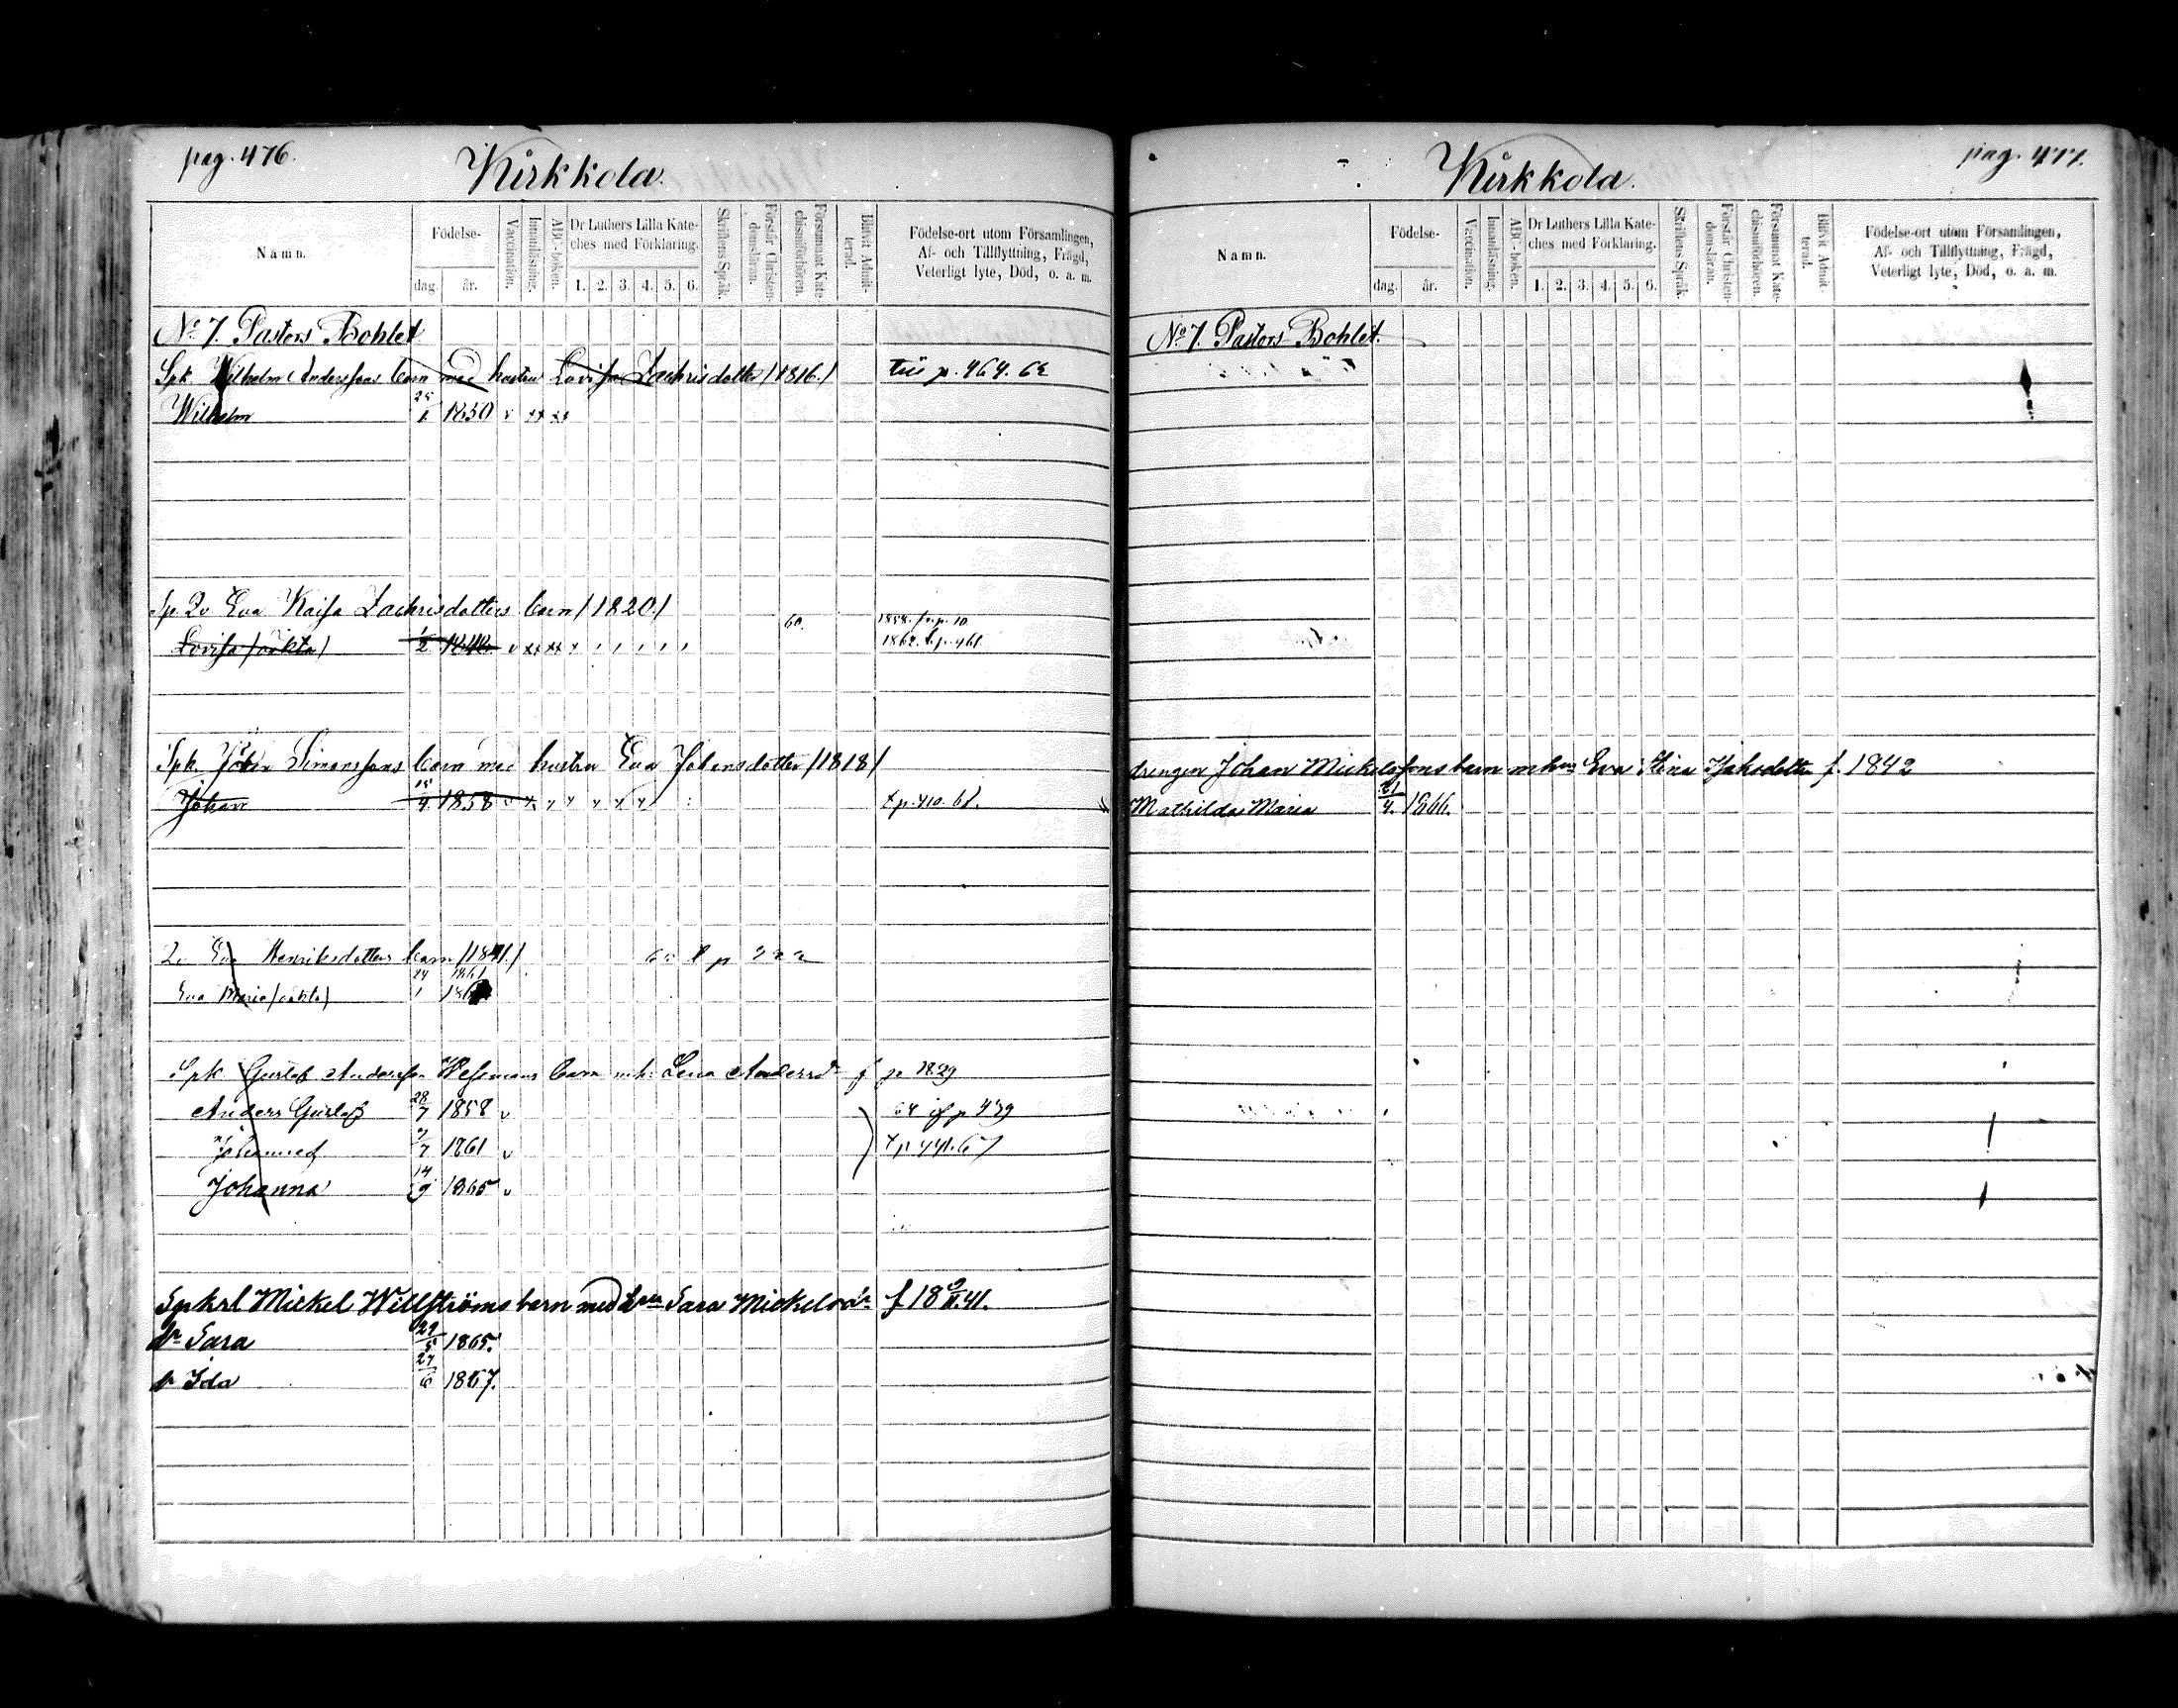 pag. 476.
Kirkkola.
Namn.
Födelse-
dag.
år.
Vaccination.
Innanläsning.
ABC-boken.
Dr Luthers Lilla Kate-
ches med Förklaring.
1. 2. 3. 4. 5. 6.
Skriftens Språk.
Förstår Christen-
domsläran.
Försummat Kate-
chismiförhören.
Blifvit Admit-
terad.
Födelse-ort utom Församlingen,
Af- och Tillflyttning, Frägd,
Veterligt lyte, Död, o. a. m.
No 7. Pastors Bohlet
Spk. Wilhelm Anderssons barn med hustru Lovisa Zachrisdotter /1816./ p. 464. 62
Wilhelm 25/1 1850 v xx xx
Sp. Qv Eva Kaisa Zachrisdotters barn /1820./
60. 1858. fr. p. 10
Lovisa /oäkta/ v xx xx x 1862. t. p. 461.
Spk. Johan Simonssons barn med hustru Eva Johansdotter /1818/
Johan 15/4 1858 v x x x x x x t p. 410. 68.
Qv Eva Henriksdotters barn p 222
24 1861
Eva Maria /oäkta/ 1
Spk. Gustaf Andersson barn m.h. Lena Andersdr f 1829
Anders Gustaf 28/7 1858 v 64 p 439
7 1861 v t p. 441. 67
Johanna 14/9 1865 v
Spkrl Mickel Willströms barn med hun Sara Mickelsdr f 18 9/11 41.
dr Sara 29/5 1865.
dr Ida 27/6 1867.
pag. 477.
Kirkkola.
Namn.
Födelse-
dag.
år.
Vaccination.
Innanläsning.
ABC-boken.
Dr Luthers Lilla Kate-
ches med Förklaring.
1. 2. 3. 4. 5. 6.
Skriftens Språk.
Förstår Christen-
domsläran.
Försummat Kate-
chismiförhören.
Blifvit Admit-
terad.
Födelse-ort utom Församlingen,
Af- och Tillflyttning, Frägd,
Veterligt lyte, Död, o. a. m.
No 7. Pastors Bohlet.
drengen Johan Mickelssons barn m hun Eva Stina f. 1842
Mathilda Maria 21/4. 1866.